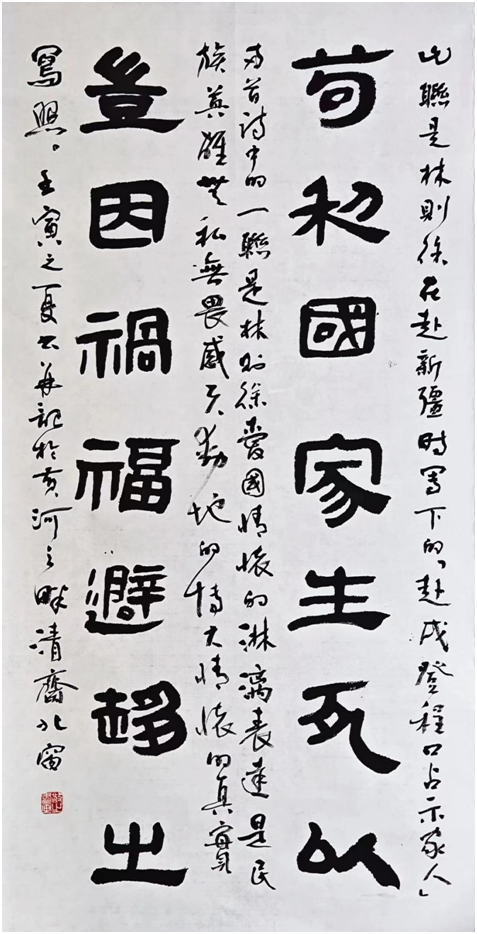 此聯是林則徐在赴新疆时寫下的「赴戍登程口占示家人」
苟利國家生死以
两首诗中的一聯是林則徐愛國情懷的淋漓表達是民
族英雄無私無畏感天動地的博大情懷的真實
豈因禍福避趍之
寫照。壬寅之夏記於黄河之畔清齋北窗